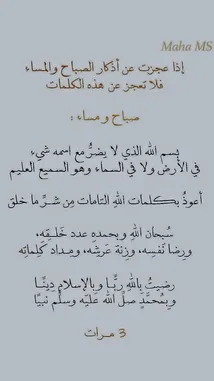 Maha MS
إذا عجزت عن أذكار الصباح والمساء
فلا تعجز عن هذه الكلمات
صباح و مساء :
بسم الله الذي لا يضرُّ مع اسمه شيء
في الأرض ولا في السماء وهو السميع العليم
أعوذُ بكلمات اللهِ التامات مِن شرِّ ما خلق
سُبحان اللهِ وبحمدِهِ عدد خَلقِه،
ورِضا نَفسِه، وزِنة عَرشِه، ومِداد كلِماتِه
رضيتُ باللهِ ربًّا وبالإسلامِ دِينًا
وبمُحمَّدٍ صلَّى الله عليه وسلَّم نبيًّا
3 مرات